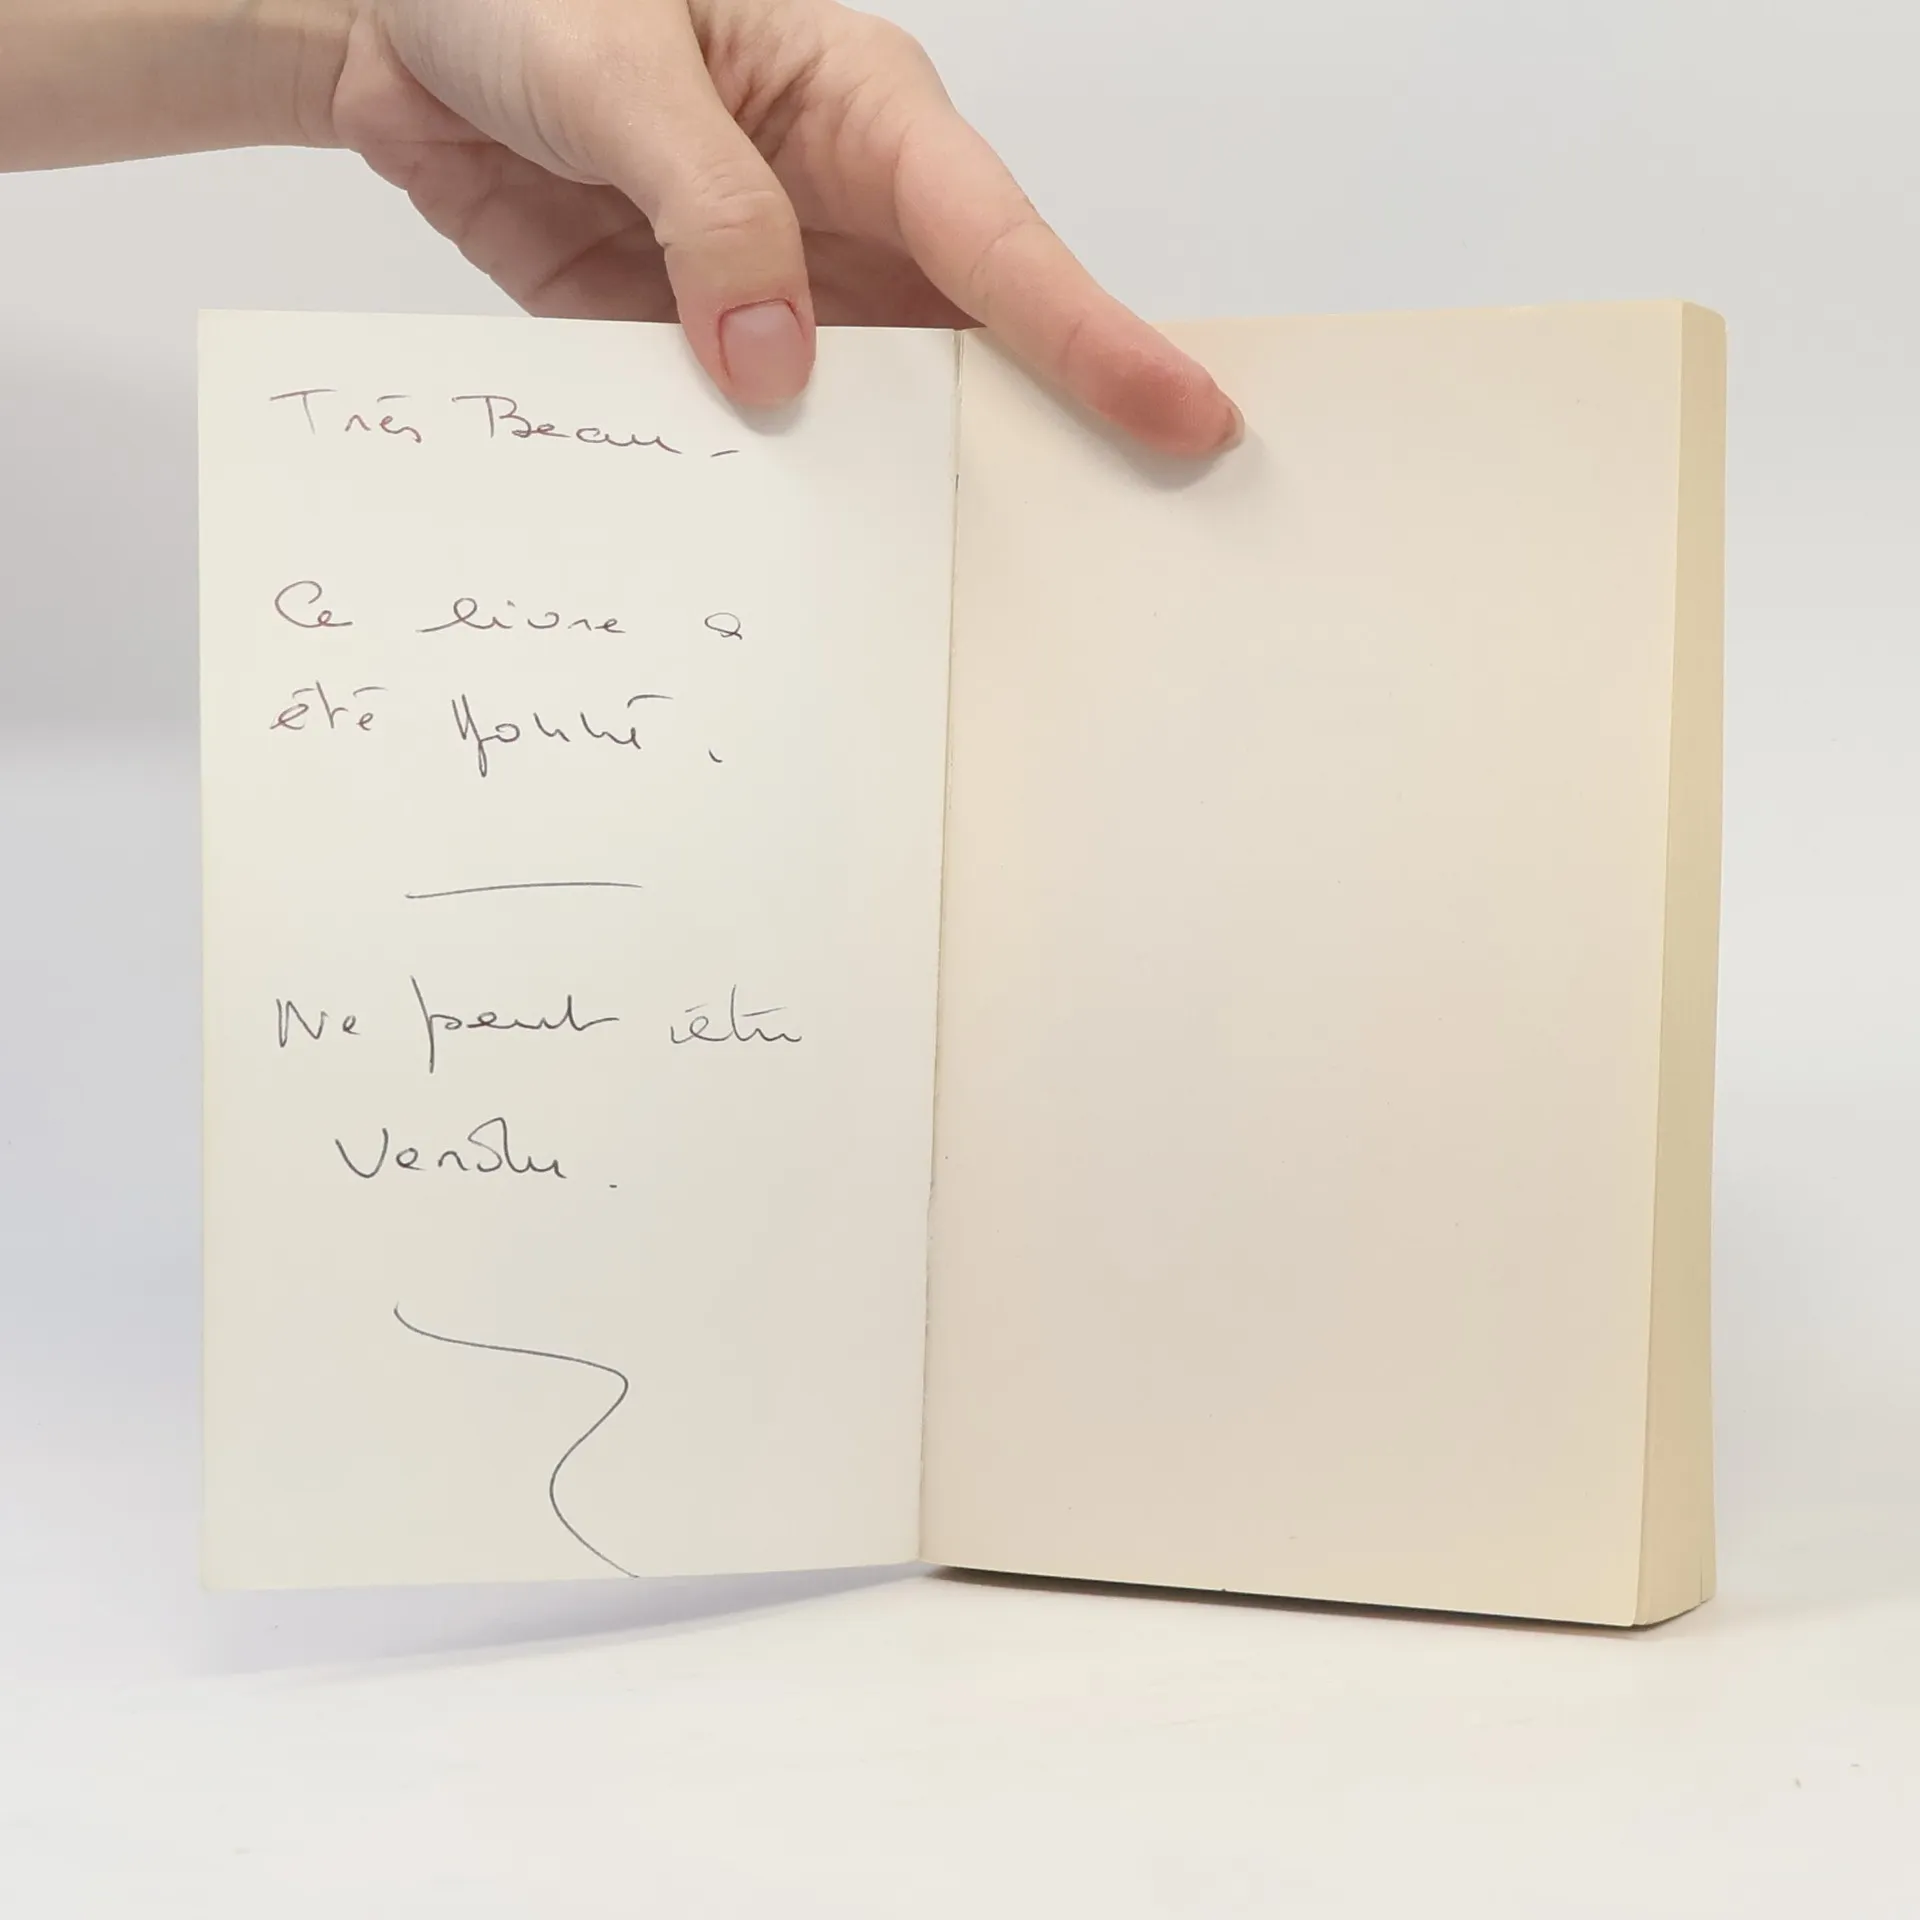 Très Beau -
Ce livre a
été donné.
Ne peut être
Vendu.